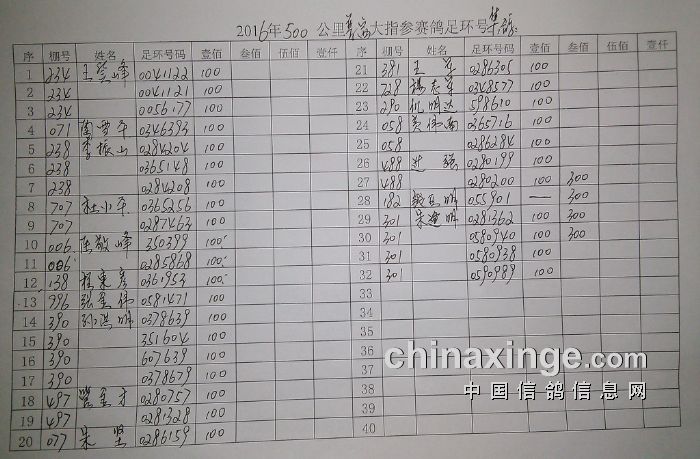 2016年500公里 大指参赛鸽足环号
序 棚号 姓名 足环号码 壹佰 叁佰 伍佰 壹仟
1 234 王 峰 0041122 100
2 234 0041121 100
3 234 0056177 100
4 071 平 0346393 100
5 238 李振山 0284204 100
6 238 0365148 100
7 238 0284208 100
8 707 杜小平 0365256 100
9 707 0287463 100
10 006 陈敬峰 350399 100
11 006 0285868 100
12 138 程東彦 0361953 100
13 996 张 伟 0581471 100
14 390 孙洪 0378639 100
15 390 351604 100
16 390 607639 100
17 390 0378679 100
18 497 0280757 100
19 497 0281328 100
20 077 吴坚 0286159 100
序 棚号 姓名 足环号码 壹佰 叁佰 伍佰 壹仟
21 381 王 0286305 100
22 728 杨志 0348577 100
23 290 仉明达 598610 100
24 058 黄伟 0365716 100
25 058 0286284 100
26 488 进 0280199 100
27 488 0280200 100 300
28 182 055901 — 300
29 301 宋建明 0281362 100 300
30 301 0580940 100 300
31 301 0580938 100
32 301 0590989 100
33
34
35
36
37
38
39
40
chinaxinge.com
中国信鸽信息网